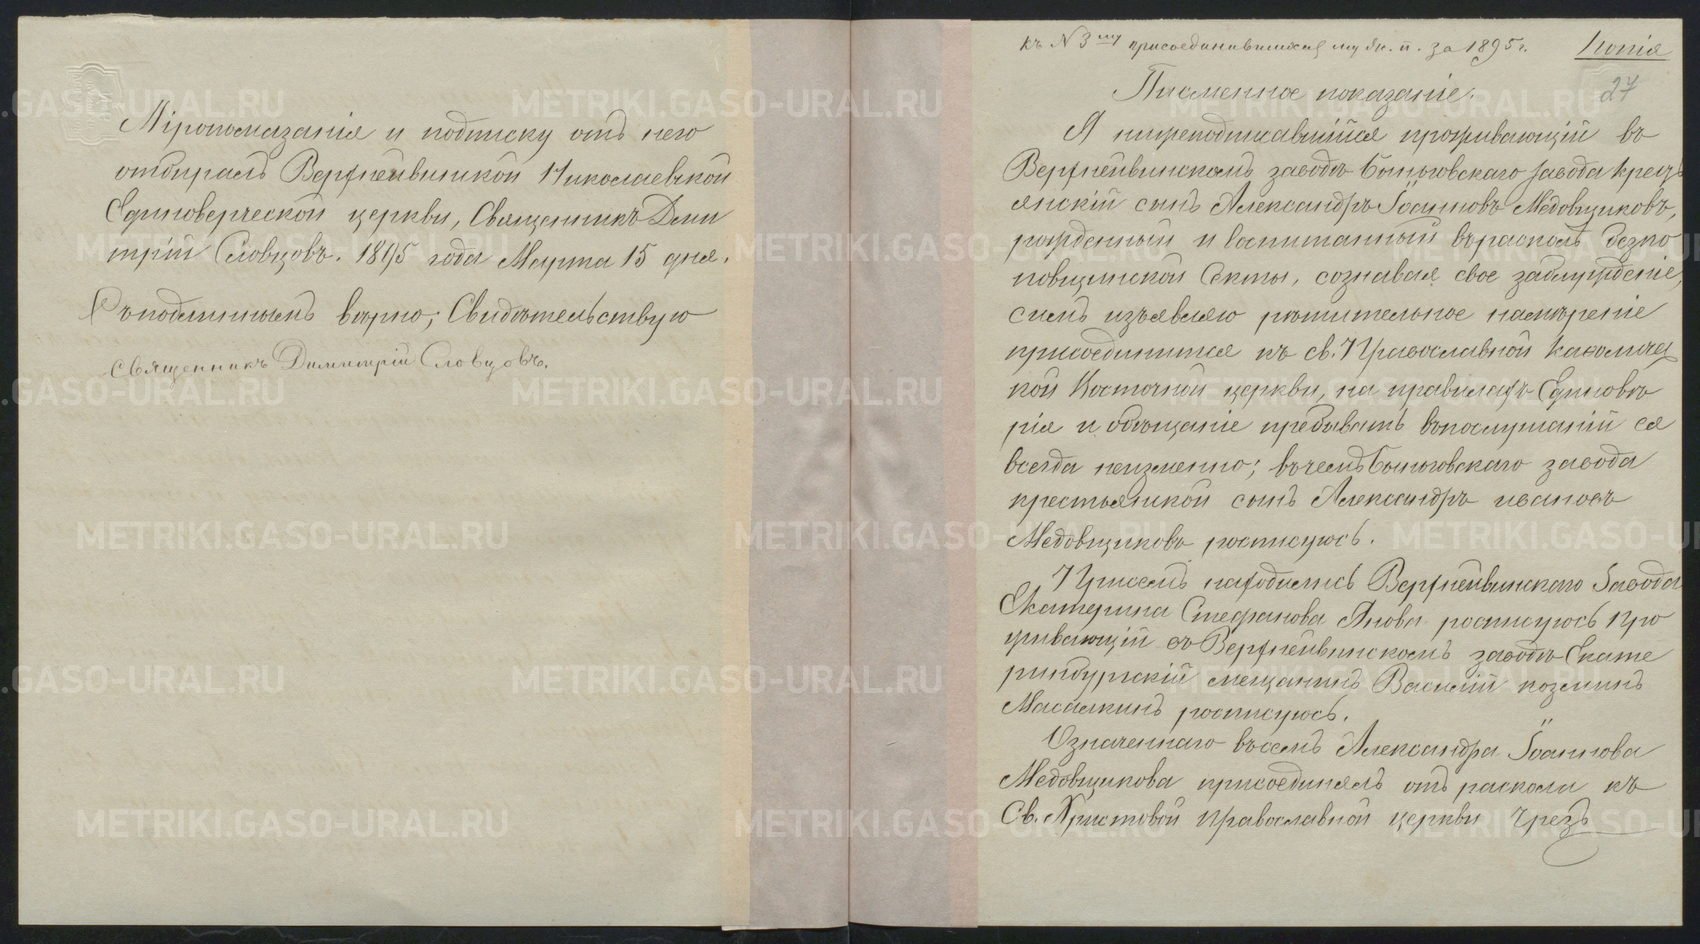 Мѵропомазанія и подписку отъ него
отбиралъ Верхнейвинской Николаевской
Единоверческой церкви, Священникъ Дими
трій Словцовъ. 1895 года Марта 15 дня.
Съ подлиннымъ вѣрно; Свидѣтельствую
священникъ Димитрій Словцовъ.
къ N 3му присоединившихся за 1895 г. Копія
27
Писменное показаніе.
Я нижеподписавшійся проживающій въ
Верхнейвинскомъ заводѣ Быньговскаго завода Кресть
янскій сынъ Александръ Іоанновъ Медовщиковъ,
рожденный и воспитанный въ расколѣ безпо
повщинской секты, сознавая свое заблужденіе,
симъ изъявляю рѣшительное намѣреніе
присоединится къ св. Православной Каѳоличес
кой Восточной церкви, на правилахъ Единовѣ
рія и обѣщаніе пребывать въ послушаніи ея
всегда неизменно; въ чемъ Быньговскаго завода
крестьянской сынъ Александръ ивановъ
Медовщиковъ росписуюсь.
При семъ находились Верхнейвинскаго Завода
Екатерина Стефанова Янова росписуюсь Про
живающій въ Верхнейвинскомъ заводѣ Екате
ринбургскій мещанинъ Василій козминъ
Масалкинъ росписуюсь.
Означеннаго въ семъ Александра Іоаннова
Медовщикова присоединялъ отъ раскола къ
Св. Христовой Православной церкви чрезъ
METRIKI.GASO-URAL.RU